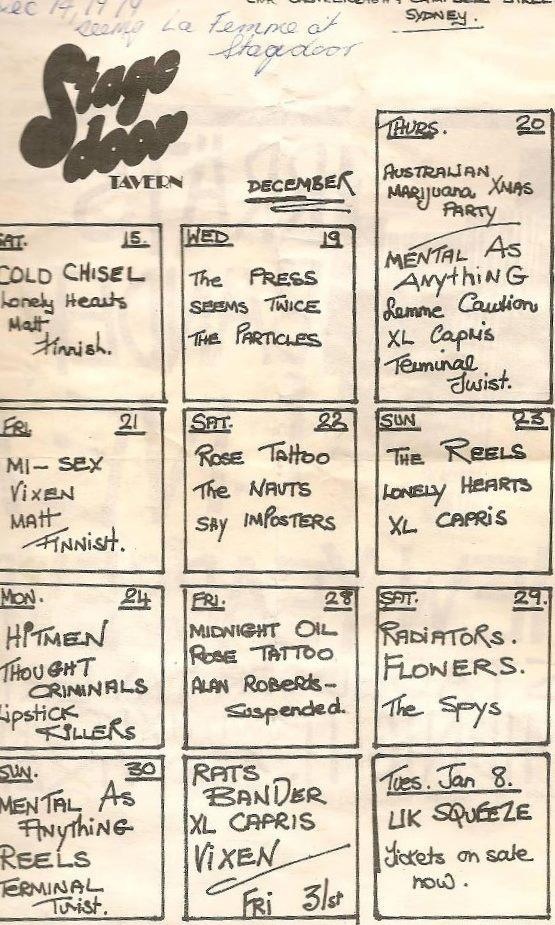 Dec 14, 1979
seeing La Femme at
Stagedoor
CAMPBELL STREET
SYDNEY.
Stage
door
TAVERN
DECEMBER
THURS. 20
AUSTRALIAN
MARIJUANA XMAS
PARTY
MENTAL AS
ANYTHING
Lemme Caution
XL Capris
Terminal
Twist.
SAT. 15.
COLD CHISEL
Lonely Hearts
Matt
Finnish.
WED 19
The PRESS
SEEMS TWICE
THE PARTICLES
FRI. 21
MI-SEX
VIXEN
MATT
FINNISH.
SAT. 22
ROSE TATTOO
The NAUTS
SAY IMPOSTERS
SUN 23
THE REELS
LONELY HEARTS
XL CAPRIS
MON. 24
HITMEN
THOUGHT
CRIMINALS
Lipstick
KILLERS
FRI. 28
MIDNIGHT OIL
ROSE TATTOO
ALAN ROBERTS-
Suspended.
SAT. 29.
RADIATORS.
FLOWERS.
The Spys
SUN. 30
MENTAL AS
ANYTHING
REELS
TERMINAL
Twist.
RATS
BANDER
XL CAPRIS
VIXEN
FRI 31st
Tues. Jan 8.
UK SQUEEZE
Tickets on sale
now.